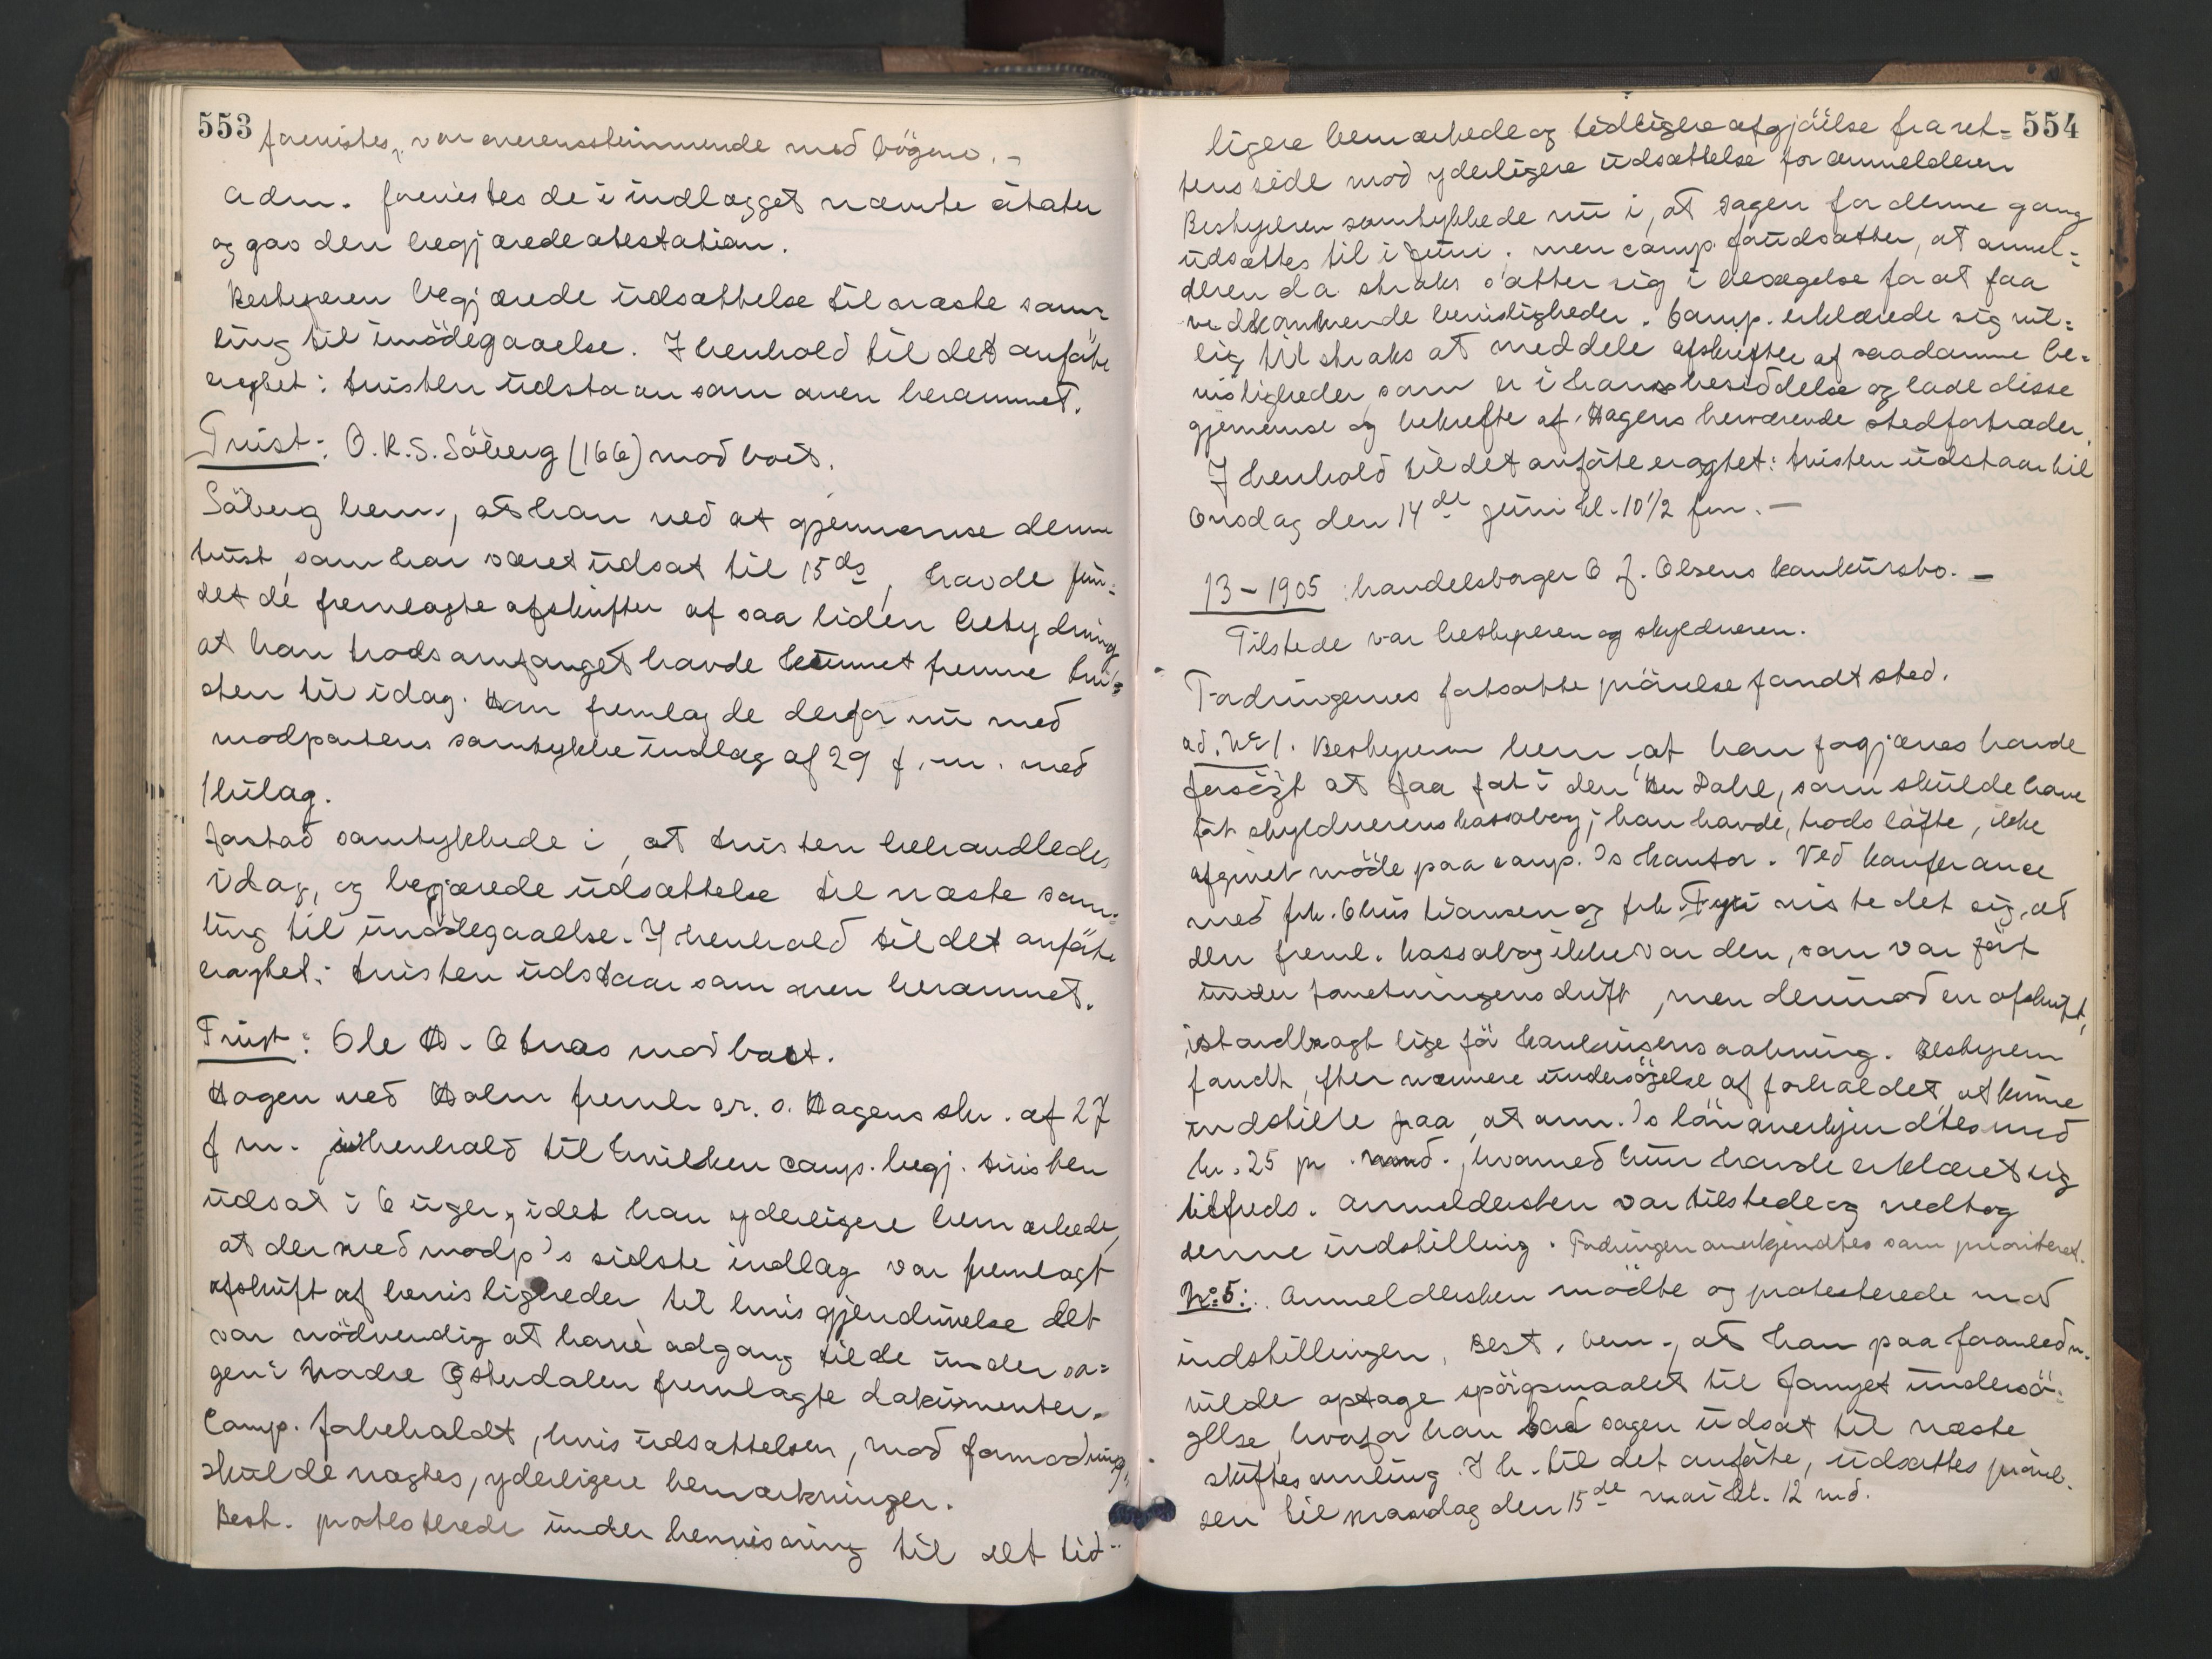 553
forevistes, var overensstemmende med bögene. –
Adm. forevistes de i indlægget nævnte citater
og gav den begjærede atestation.
Bestyreren begjærede udsættelse til næste sam-
ling til imödegaaelse. I henhold til det anförte
eragtet: tvisten udstaar som oven berammet.
Tvist: O. K. S. Söberg (166) mod boet.
Söberg bem., at han ved at gjennemse denne
tvist, som har været udsat til 15 ds, havde fun-
det de fremlagte afskrifter af saa liden betydning
at han trods omfanget havde kunnet fremme tvi-
sten til idag. Han fremlagde derfor nu med
modpartens samtykke indlæg af 29 f. m. med
1 bilag.
Jartad samtykkede i, at tvisten behandledes
idag, og begjærede udsættelse til næste sam-
ling til imödegaaelse. I henhold til det anförte
eragtet: tvisten udstaar som oven berammet.
Tvist: Ole H. Otnæs mod boet.
Hagen ved Holm freml. o.r.s. Hagens skr. af 27
f m. i henhold til hvilken comp. begj. tvisten
udsat i 6 uger, idet han yderligere bemærkede,
at der med modp's sidste indlæg var fremlagt
afskrift af bevisligheder til hvis gjendrivelse det
var nödvendig at have adgang til de under sa-
gen i Nordre Østerdalen fremlagte dokumenter.
Comp. forbeholdt, hvis udsættelsen, mod formodning,
skulde nægtes, yderligere bemærkninger.
Best. protesterede under henvisning til alt tid-
554
ligere bemærkede og tidligere afgjörelse fra ret-
tens side mod yderligere udsættelse for anmelderen
Bestyreren samtykkede nu i, at sagen for denne gang
udsættes til i juni. men comp. forudsætter, at anmel-
deren da straks sætter sig i bevægelse for at faa
vedkommende bevisligheder. Comp. erklærede sig vil-
lig til straks at meddele afskrifter af saadanne be-
visligheder, som er i hans besiddelse og lade disse
gjennemse og bekræfte af Hagens herværende stedfortræder.
I henhold til det anförte eragtet: tvisten udstaar til
Onsdag den 14de juni kl. 10 1/2 fm. –
13 – 1905 : handelsborger O J. Olsens konkursbo. –
Tilstede var bestyreren og skyldneren.
Fordringernes fortsatte prövelse fandt sted.
ad. No 1. Bestyreren bem. at han forgjæves havde
forsögt at faa fat i den Hr Dahl, som skulde have
fört skyldnerens kassabog; han havde, trods löfte, ikke
afgivet möde paa comp.'s kontor. Ved konferance
med frk. Christiansen og frk. Fyri viste det sig, at
den freml. kassabog ikke var den, som var fört
under forretningens drift, men derimod en afskrift,
istandbragt lige för konkursens aabning. Bestyreren
fandt, efter nærmere undersögelse af forholdet, at kunne
indstille paa, at anm.'s lön anerkjendtes med
kr. 25 pr. mnd., hvormed hun havde erklæret sig
tilfreds. Anmeldersken var tilstede og vedtog
denne indstilling. Fordringen anerkjendtes som prioriteret.
No 5: Anmeldersken mödte og protesterede mod
indstillingen. Best. bem., at han paa foranledn.
vilde optage spörgsmaalet til fornyet undersö-
gelse, hvorfor han bad sagen udsat til næste
skiftesamling. I h. til det anförte, udsættes prövel-
sen til mandag den 15de mai kl. 12 md.